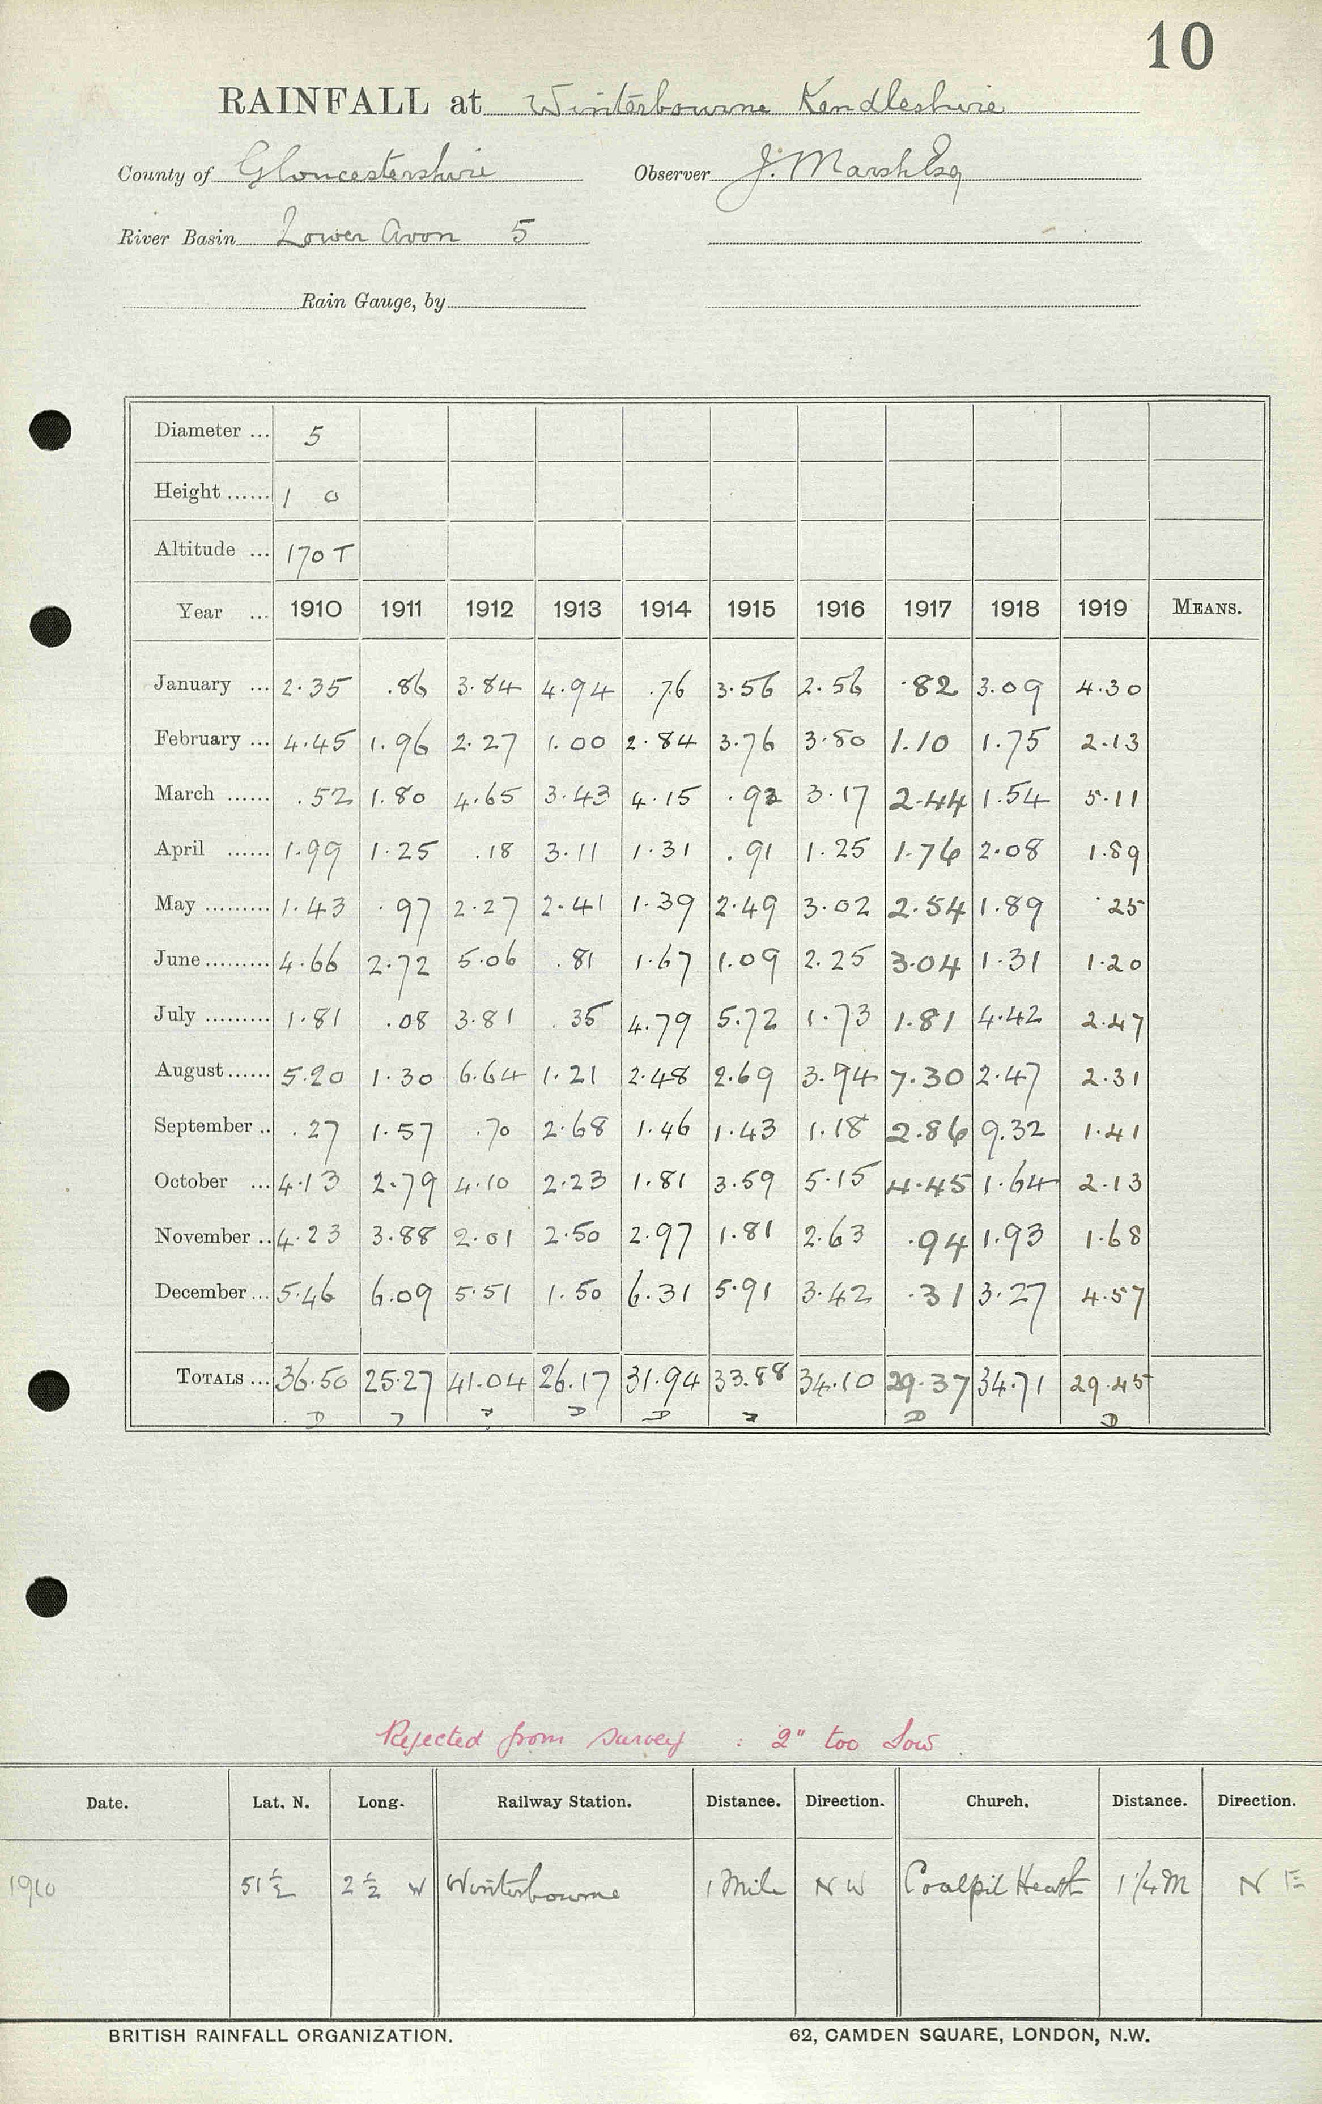 10
RAINFALL at Winterbourne Kendleshire
County of Gloucestershire Observer J. Marsh Esq
River Basin Lower Avon 5
Rain Gauge, by
Diameter ... 5
Height ...... 1 0
Altitude ... 170 T
Year ... 1910 1911 1912 1913 1914 1915 1916 1917 1918 1919 MEANS.
January ... 2.35 .86 3.84 4.94 .76 3.56 2.56 .82 3.09 4.30
February ... 4.45 1.96 2.27 1.00 2.84 3.76 3.80 1.10 1.75 2.13
March ...... .52 1.80 4.65 3.43 4.15 .92 3.17 2.44 1.54 5.11
April ...... 1.99 1.25 .18 3.11 1.31 .91 1.25 1.76 2.08 1.89
May ......... 1.43 .97 2.27 2.41 1.39 2.49 3.02 2.54 1.89 .25
June ......... 4.66 2.72 5.06 .81 1.67 1.09 2.25 3.04 1.31 1.20
July ......... 1.81 .08 3.81 .35 4.79 5.72 1.73 1.81 4.42 2.47
August ...... 5.20 1.30 6.64 1.21 2.48 2.69 3.94 7.30 2.47 2.31
September .. .27 1.57 .70 2.68 1.46 1.43 1.18 2.86 9.32 1.41
October ... 4.13 2.79 4.10 2.23 1.81 3.59 5.15 4.45 1.64 2.13
November .. 4.23 3.88 2.01 2.50 2.97 1.81 2.63 .94 1.93 1.68
December ... 5.46 6.09 5.51 1.50 6.31 5.91 3.42 .31 3.27 4.57
TOTALS ... 36.50 25.27 41.04 26.17 31.94 33.88 34.10 29.37 34.71 29.45
D D D D D D D D
Rejected from survey : 2" too low
Date. Lat. N. Long. Railway Station. Distance. Direction. Church. Distance. Direction.
1910 51 ½ 2 ½ W Winterbourne 1 Mile N W Coalpit Heath 1 ¼ M N E
BRITISH RAINFALL ORGANIZATION. 62, CAMDEN SQUARE, LONDON, N.W.